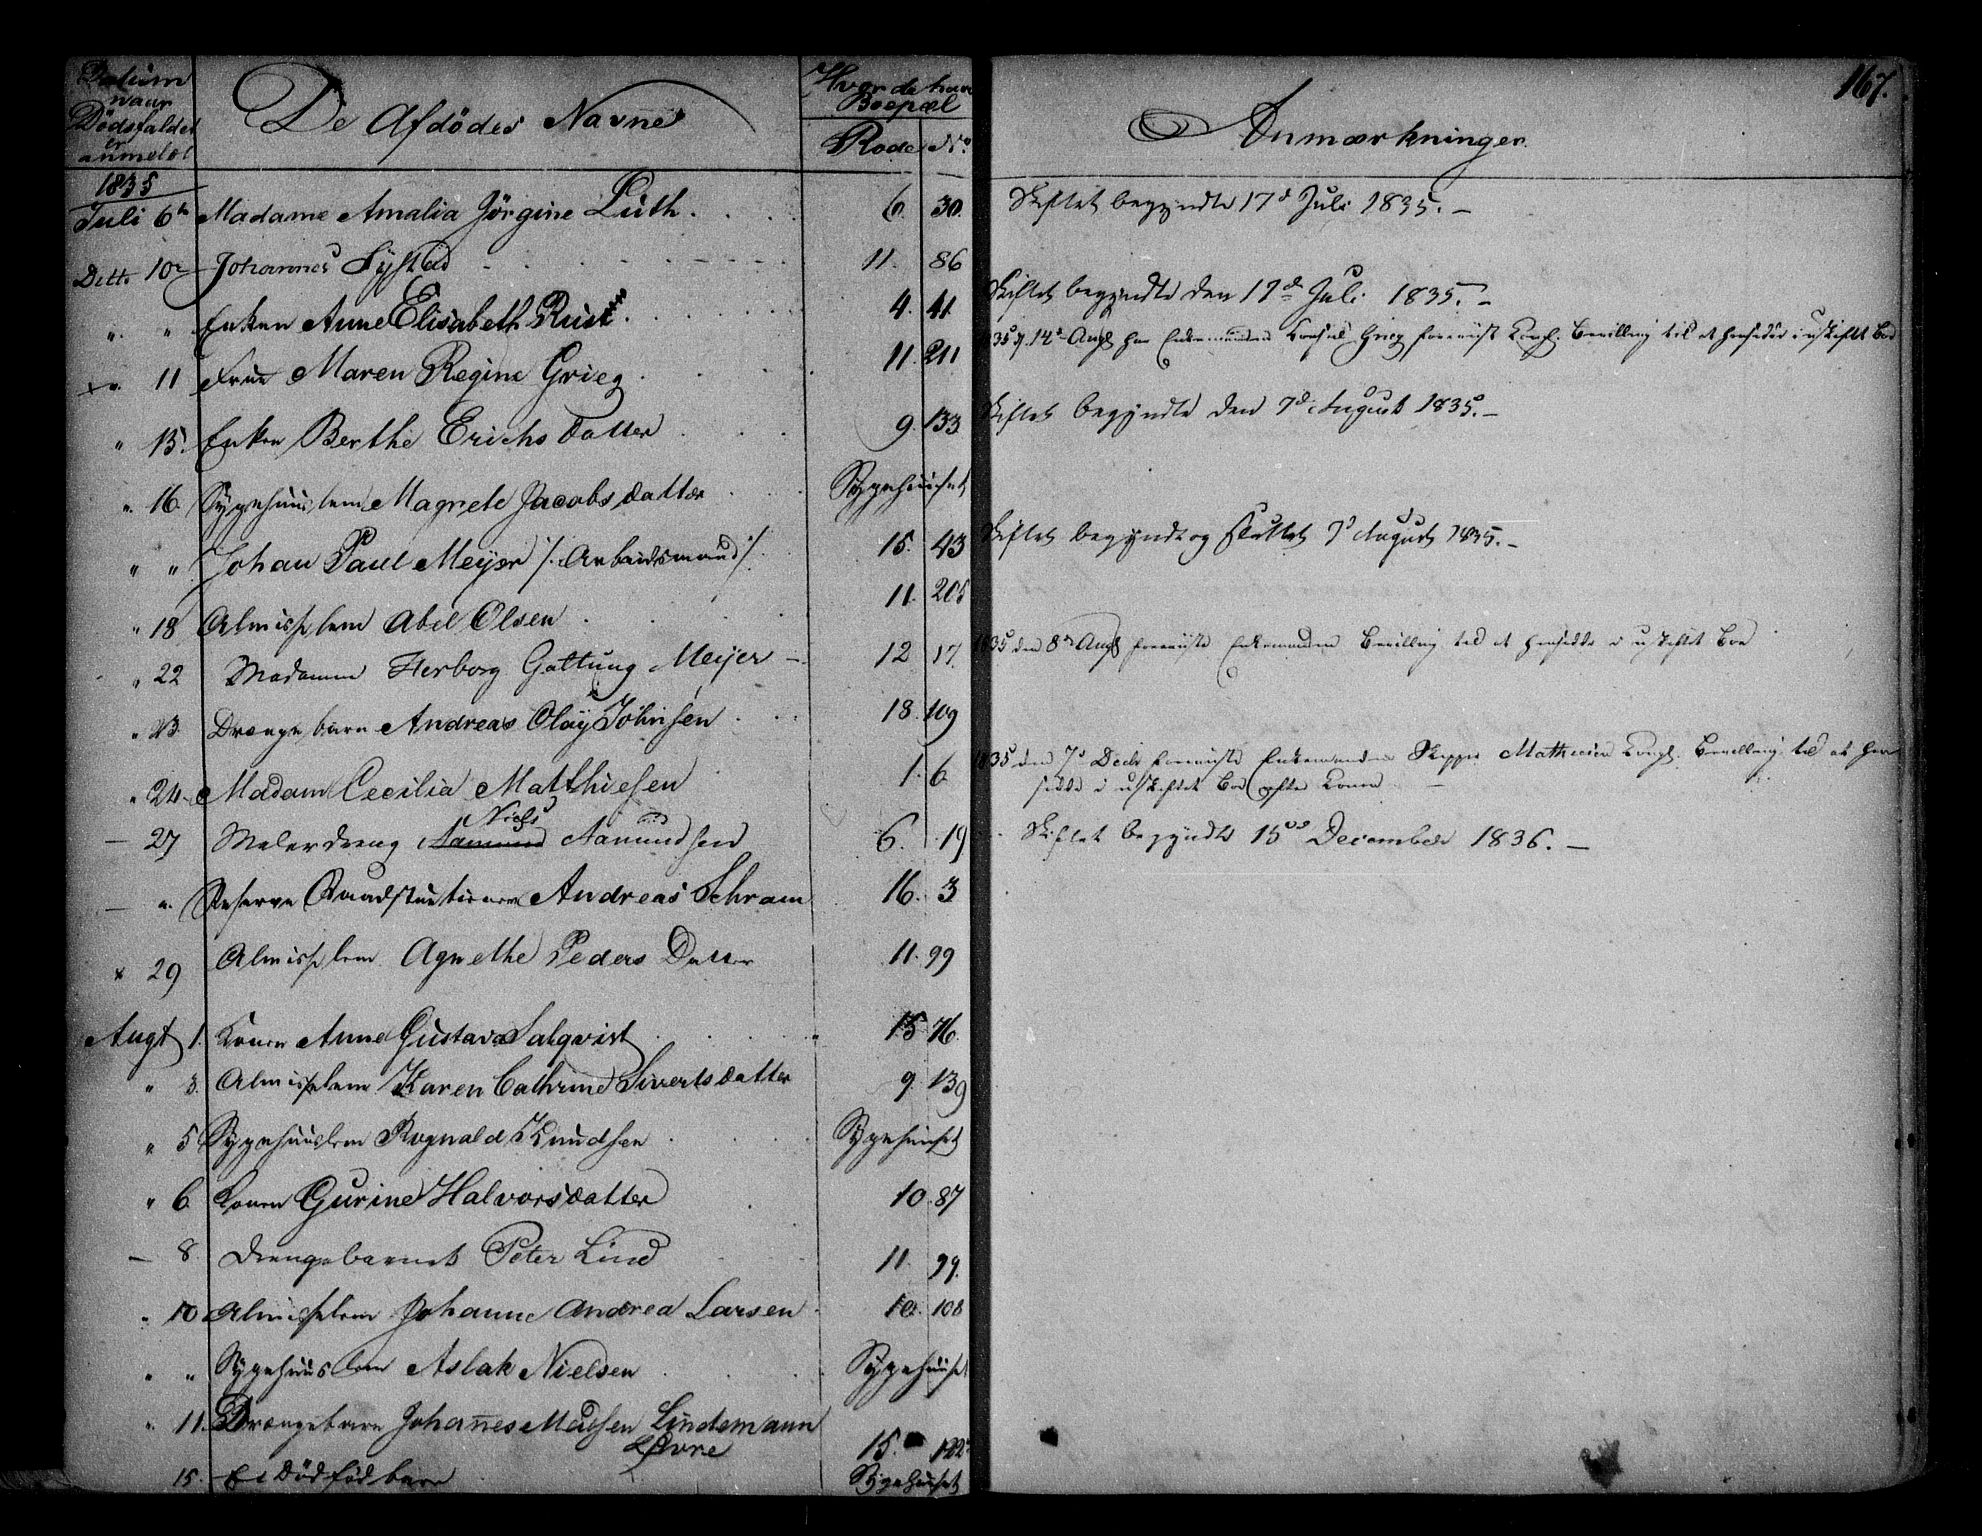 167.
Datum naar Dødsfaldet er anmeldt
De Afdødes Navne
Hvor de har Boepæl
Rode No
Anmærkninger.
1835
Juli 6te Madame Amalia Jörgine Lüth. 6. 30. Skiftet begyndte 17d Juli 1835. –
Ditto 10de Johannes Systad 11. 86
" " Enken Anne Elisabeth Rust 4. 41. Skiftet begyndte den 17de Juli 1835. –
" 11 Frue Maren Regine Grieg 11. 211 1835 d. 14de Augt har Enkemanden Consul Grieg foreviist Kongl. Bevilling til at hensidde i uskiftet Boe
" 15. Enken Berthe Erichsdatter 9. 133. Skiftet begyndte den 7d August 1835. –
" 16. Sygehuuslem Magrete Jacobsdatter Sygehuuset
" " Johan Paul Meyer /: Arbeidsmand :/ 15. 43 Skiftet begyndt og sluttet 7d August 1835. –
" 18 Almisselem Abel Olsen 11. 205
" 22 Madamme Herborg Galtung Meijer – 12 17. 1835 den 8de Augt foreviiste Enkemanden Bevilling til at hensidde i uskiftet Boe
" 23. Drængebarn Andreas Olay Johnsen 18. 109
" 24. Madam Cecilia Matthiesen 1. 6. 1835 den 7d Decbr foreviiste Enkemanden Skipper Mathiesen Kongl. Bevilling til at hen
sidde i uskiftet Boe efter Konen –
Niels
— 27 Malerdreng Aamund Aamundsen 6. 19 Skiftet begyndte 15de December 1836. –
— " Reserve Andreas Schram 16. 3
" 29 Almisselem Agnethe Peders Datter 11. 99
Augt 1. Konen Anne Gustava Salqvist 15 76.
" 3. Almisselem Karen Cathrine Sivertsdatter 9. 139
" 5 Sygehuuslem Rognald Knudsen Sygehuuset
" 6. Konen Gurine Halvorsdatter 10. 87
— 8. Drengebarnet Peter Lind 11. 99.
" 10 Almisselem Johanne Andrea Larsen 10. 108
" " Sygehuuslem Aslak Nielsen Sygehuuset
" 11. Drængebarn Johannes Madsen Lindemann
Løvre 15. 122
15. Et Dødfød barn Sygehuuset